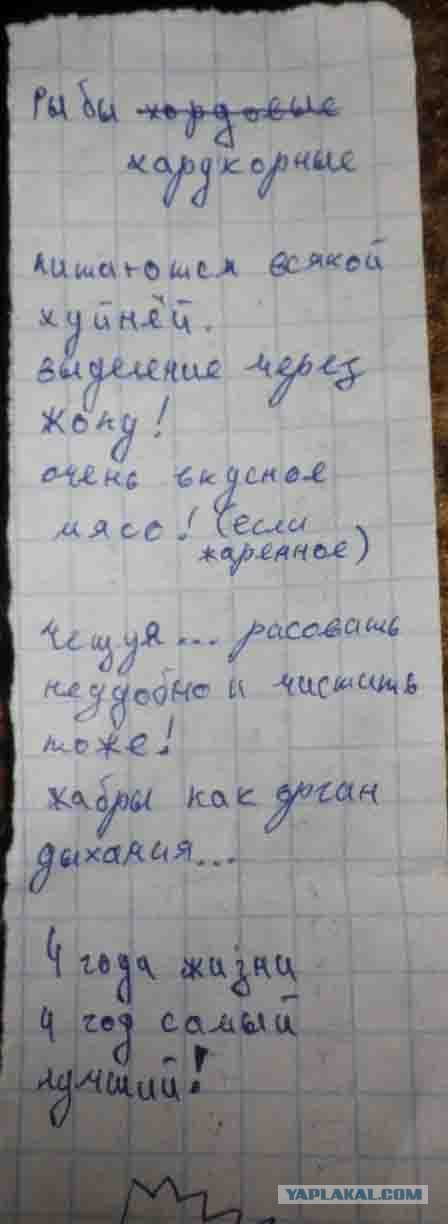 Рыбы хордовые
хардкорные
питаются всякой
хуйнёй.
выделение через
жопу!
очень вкусное
мясо! (если
жаренное)
Чешуя... расовать
неудобно и чистить
тоже!
жабры как орган
дыхания...
4 года жизни
4 год самый
лучший!
YAPLAKAL.COM